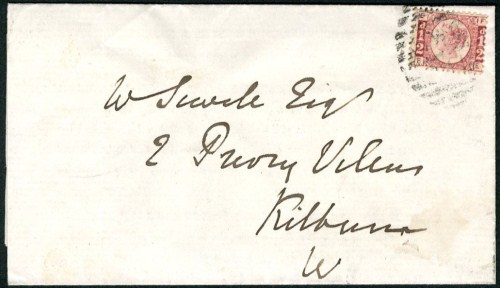 W Sewele Esq
2 Priory Villas
Kilburn
W